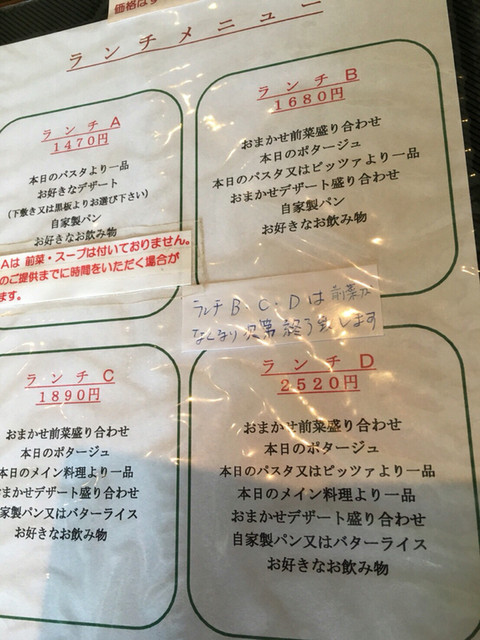 価格はす
ランチメニュー
ランチA
1470円
本日のパスタより一品
お好きなデザート
(下敷き又は黒板よりお選び下さい)
自家製パン
お好きなお飲み物
Aは 前菜・スープは付いておりません。
のご提供までに時間をいただく場合が
ます。
ランチB
1680円
おまかせ前菜盛り合わせ
本日のポタージュ
本日のパスタ又はピッツァより一品
おまかせデザート盛り合わせ
自家製パン
お好きなお飲み物
ランチB・C・Dは前菜が
なくなり次第終了致します
ランチC
1890円
おまかせ前菜盛り合わせ
本日のポタージュ
本日のメイン料理より一品
おまかせデザート盛り合わせ
家製パン又はバターライス
お好きなお飲み物
ランチD
2520円
おまかせ前菜盛り合わせ
本日のポタージュ
本日のパスタ又はピッツァより一品
本日のメイン料理より一品
おまかせデザート盛り合わせ
自家製パン又はバターライス
お好きなお飲み物